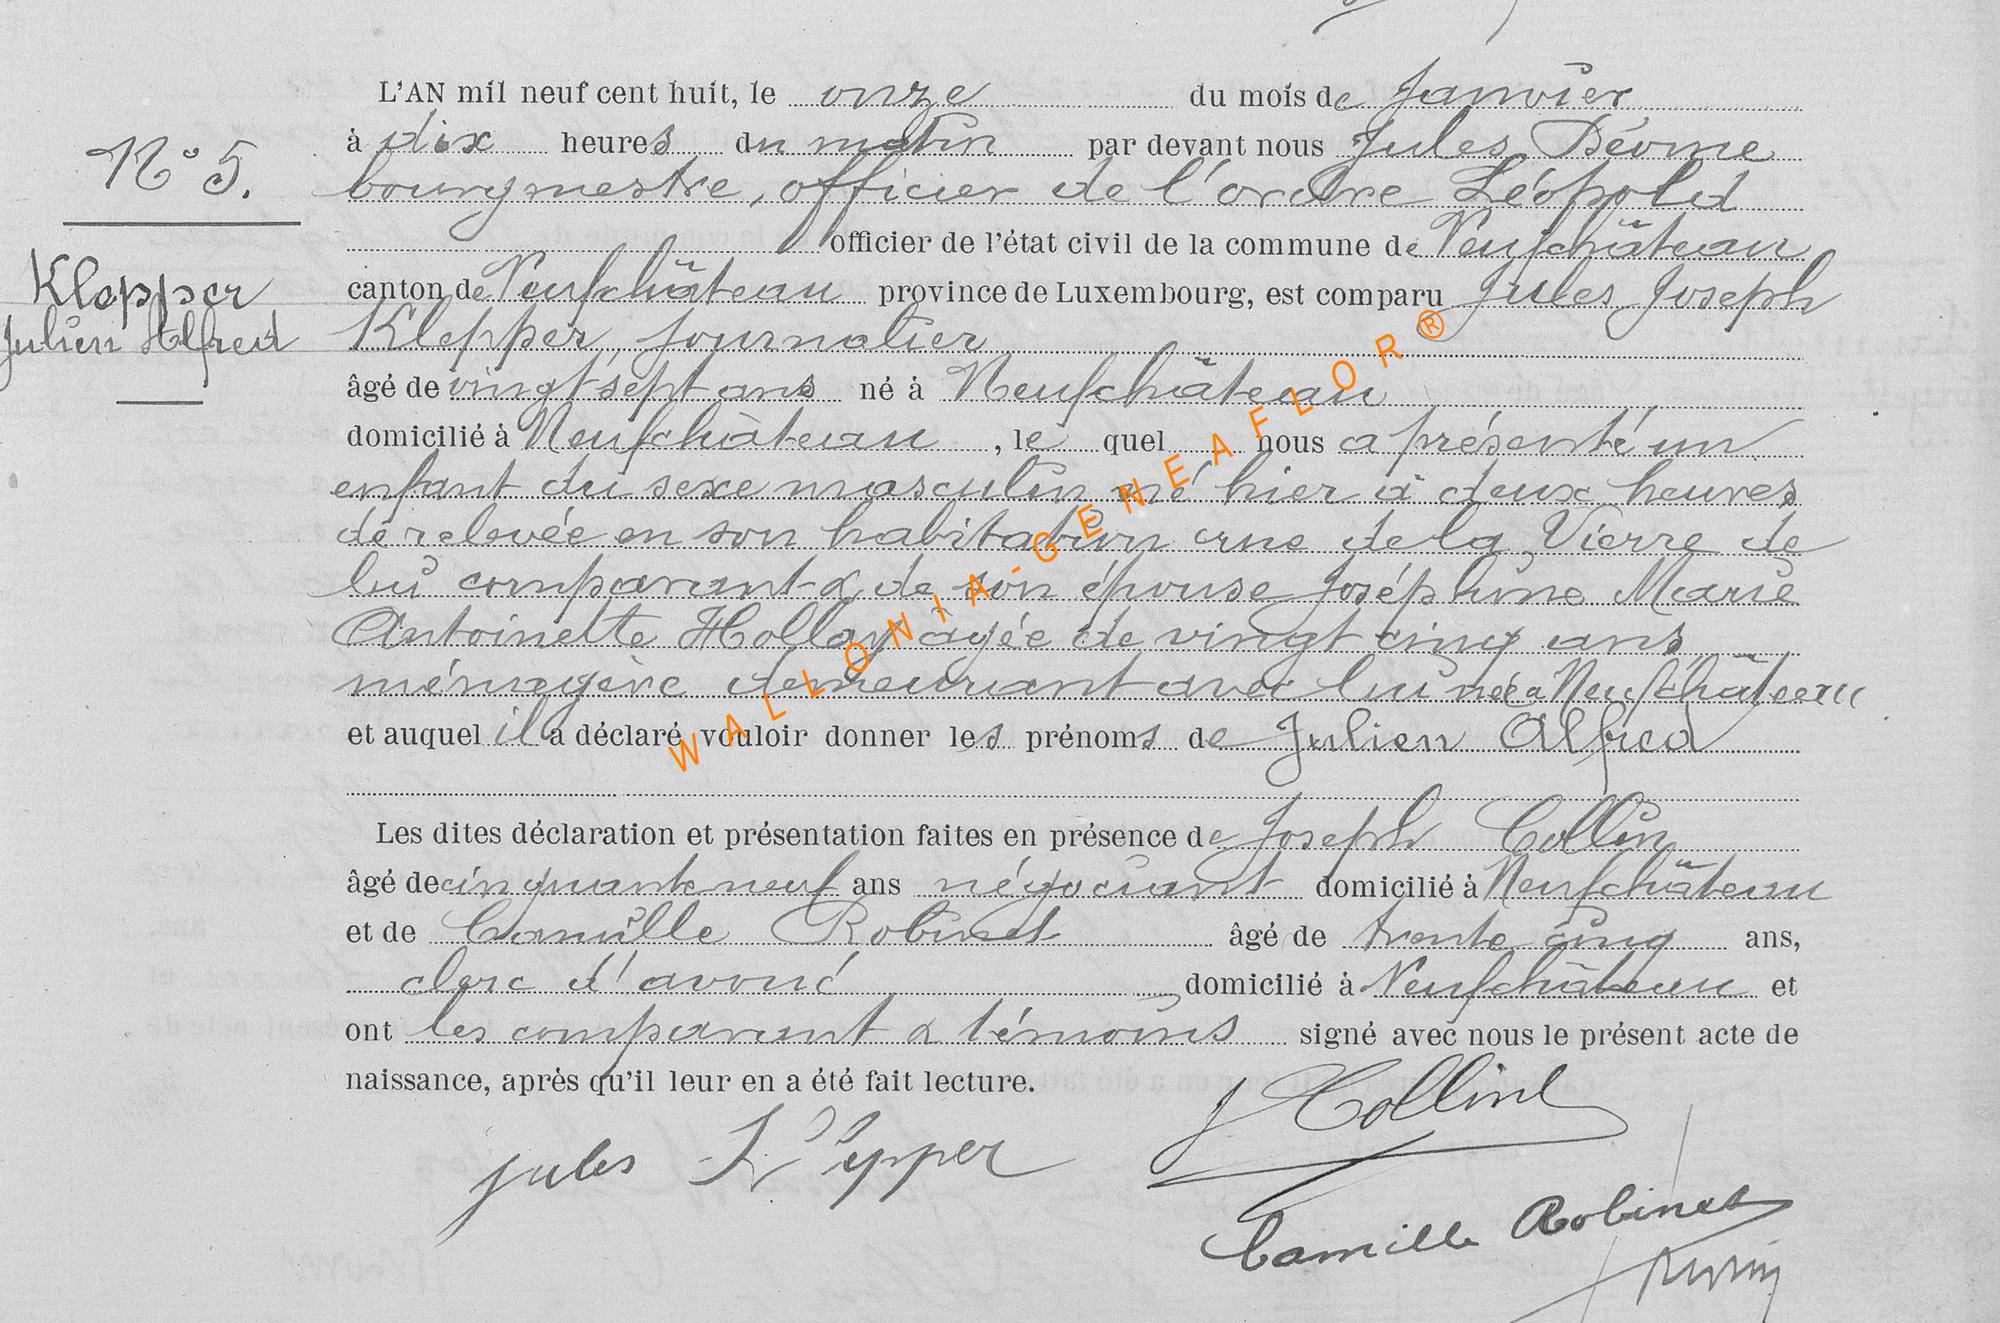 L'AN mil neuf cent huit, le onze du mois de Janvier
à dix heures du matin par devant nous Jules
bourgmestre, officier de l'ordre Léopold
officier de l'état civil de la commune de Neufchâteau
canton de Neufchâteau province de Luxembourg, est comparu Jules Joseph
Klepper, journalier
âgé de vingt sept ans né à Neufchâteau
domicilié à Neufchâteau, le quel nous a présenté un
enfant du sexe masculin né hier à deux heures
de relevée en son habitation rue de la Vierre de
lui comparant & de son épouse Joséphine Marie
Antoinette Hollay âgée de vingt cinq ans
ménagère demeurant avec lui née à Neufchâteau
et auquel il a déclaré vouloir donner les prénoms de Julien Alfred
Les dites déclaration et présentation faites en présence de Joseph Collin
âgé de cinquante neuf ans négociant domicilié à Neufchâteau
et de Camille Robinet âgé de trente cinq ans,
clerc d'avoué domicilié à Neufchâteau et
ont les comparant & témoins signé avec nous le présent acte de
naissance, après qu'il leur en a été fait lecture.
N° 5.
Klepper
Julien Alfred
J Collin
jules Klepper
Camille Robinet
WALLONIA-GENEAFLOR®